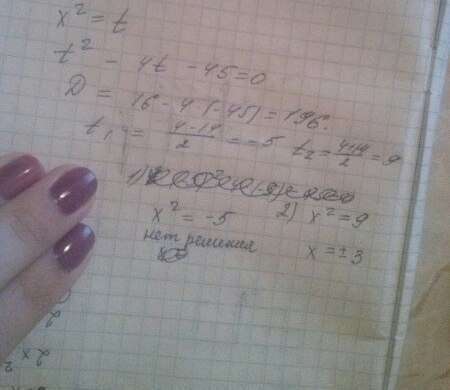 x² = t
t² - 4t - 45 = 0
D = 16 - 4 (-45) = 196.
t₁ = (4-14)/2 = -5 t₂ = (4+14)/2 = 9
1)
x² = -5 2) x² = 9
нет решения x = ±3